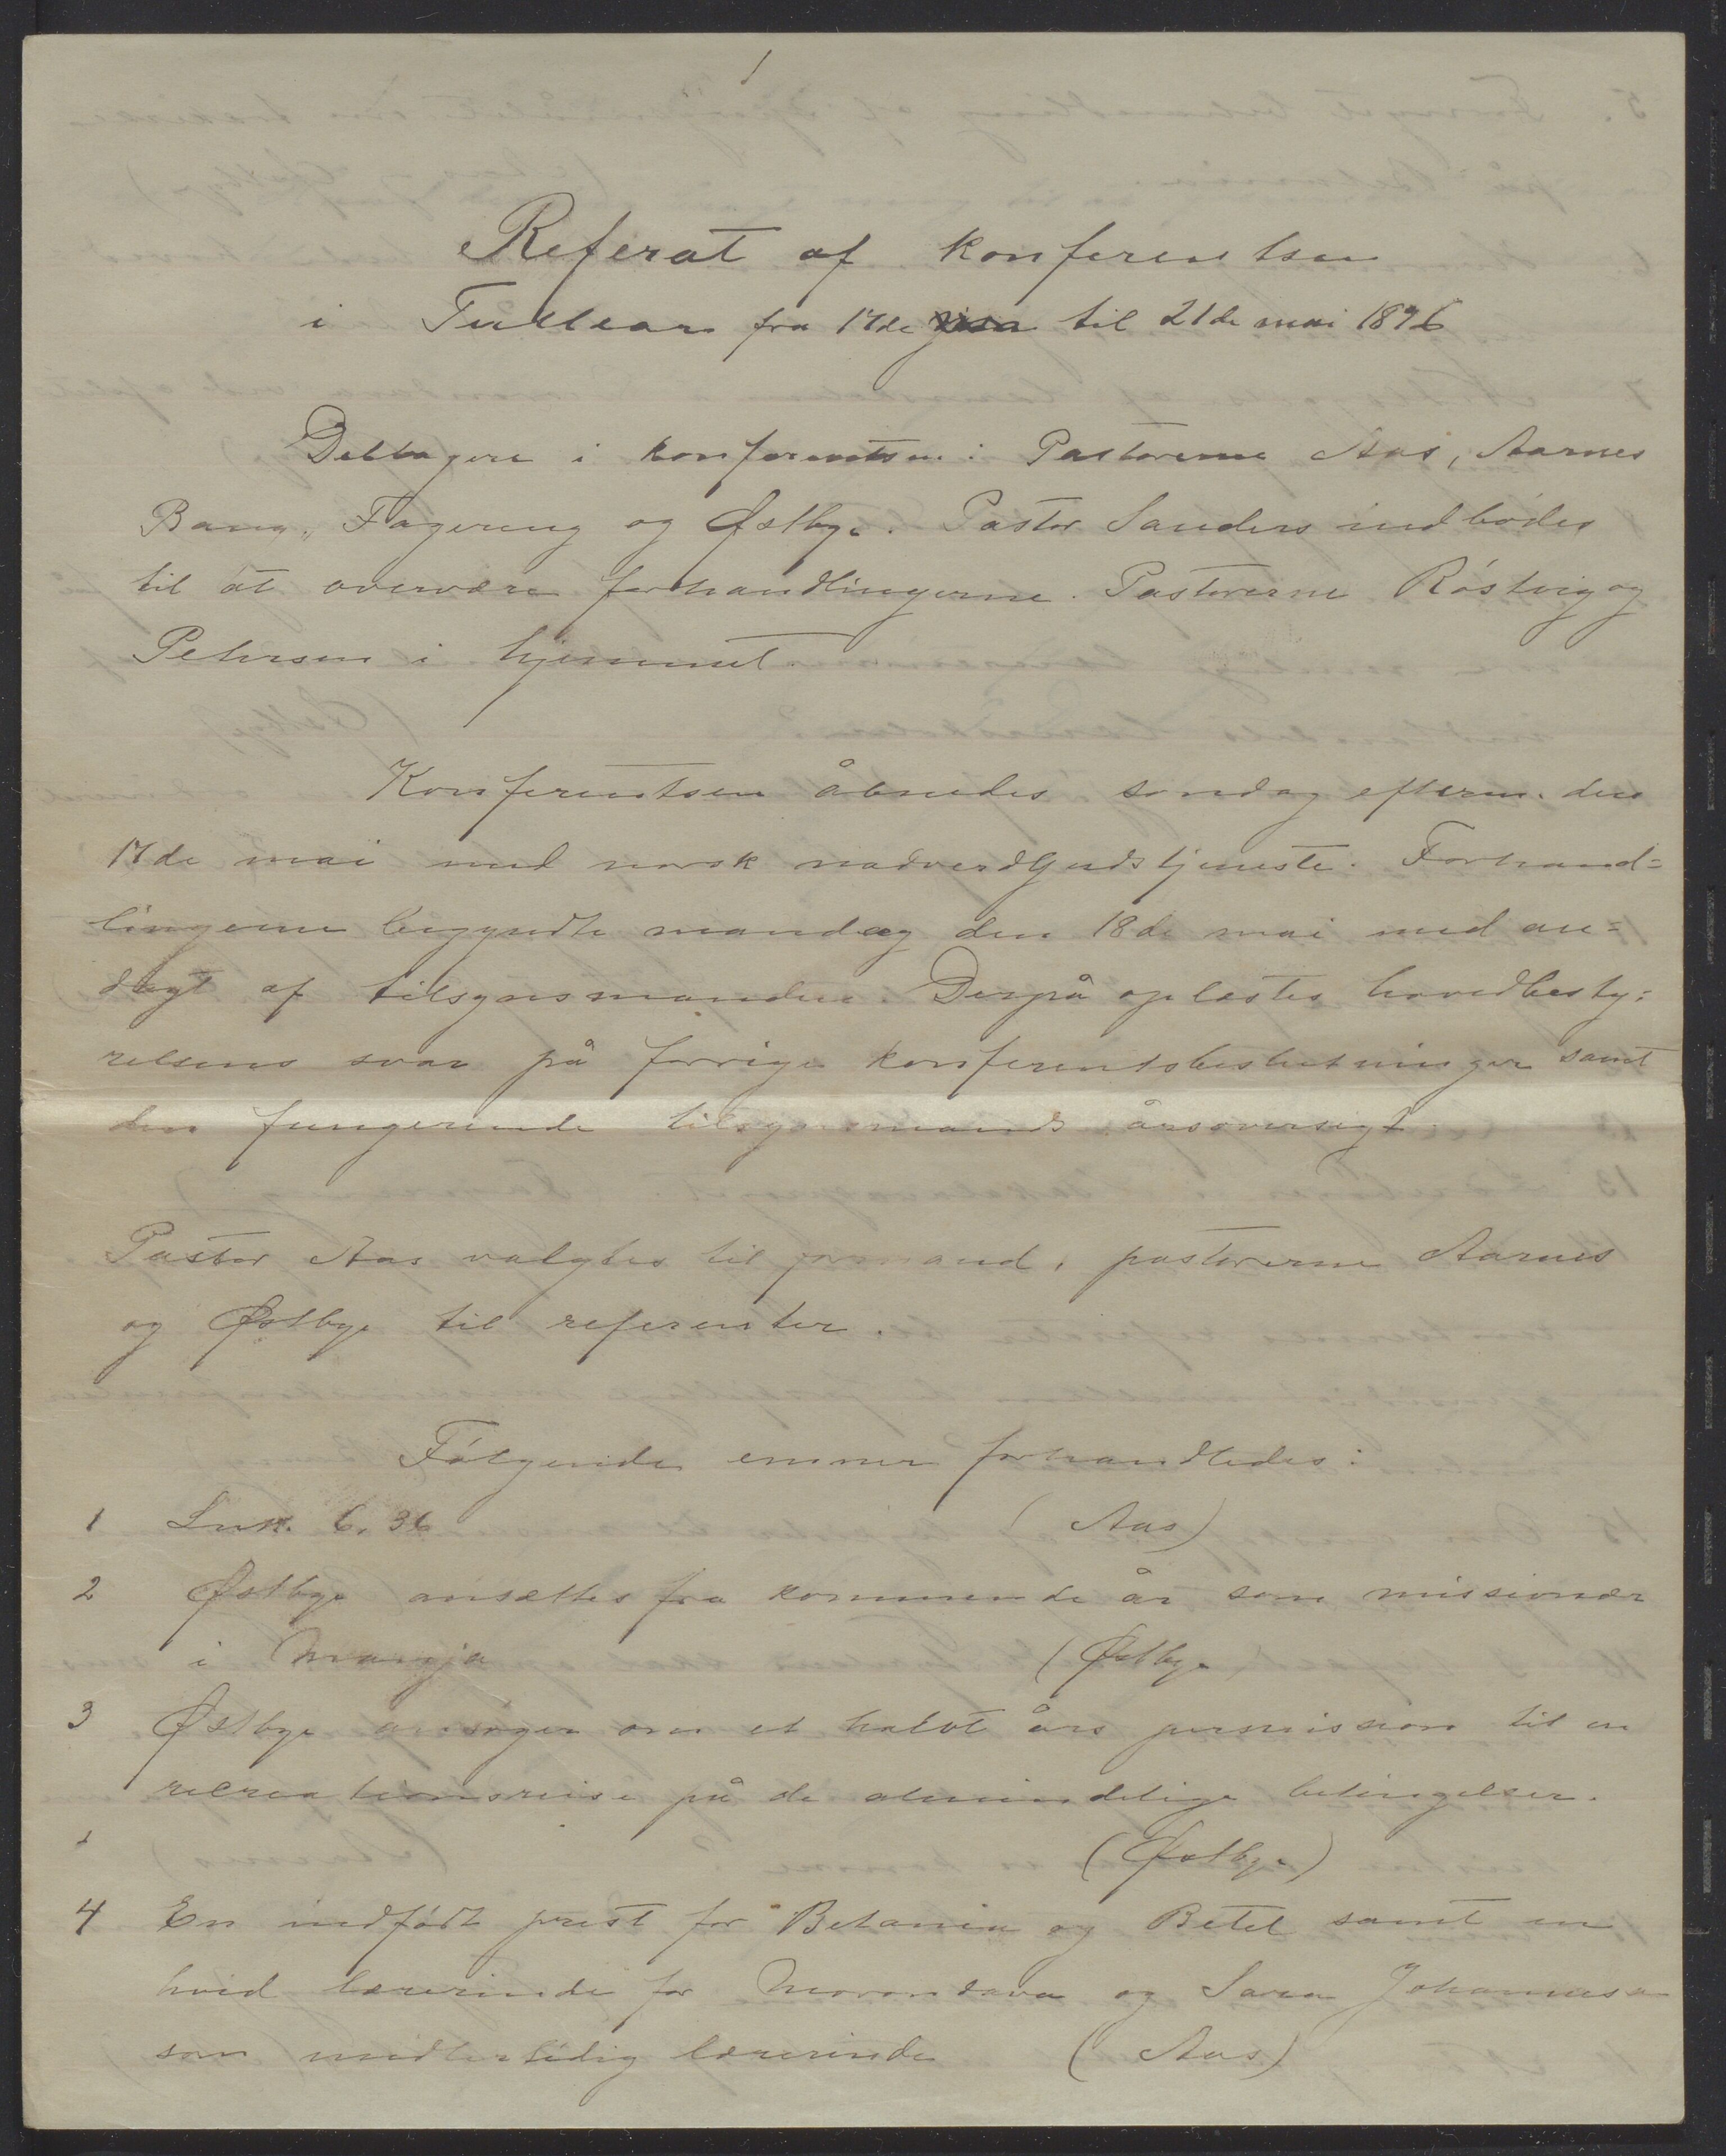 1
Referat af Konferentsen
i Tullear fra 17de til 21de mai 1896
Deltagere i konferentsen: Pastorerne Aas, Aarnes
Bang, Fagereng og Østbye. Pastor Sanders indbødes
til at overvære forhandlingerne. Pastorerne Røstvig og
Petersen i hjemmet.
Konferentsen åbnedes søndag efterm. den
17de mai med norsk nadverdgudstjeneste. Forhand=
lingerne begyndte mandag den 18de mai med an=
dagt af tilsynsmanden. Derpå oplæstes hovedbesty=
relsens svar på forrige konferentsbeslutninger samt
den fungerende tilsynsmands årsoversigt.
Pastor Aas valgtes til formand, pastorerne Aarnes
og Østbye til referenter.
Følgende emner forhandledes:
1 Luk. 6, 36 (Aas)
2 Østbye ansættes fra kommende år som missionær
i Manja (Østbye
3 Østbye ansøger om et halvt års permission til en
recreationsreise på de almindelige betingelser.
(Østbye)
4 En indfødt prest for Betania og Betel samt en
hvid lærerinde for Morondava og Sara Johannesa
som midlertidig lærerinde (Aas)